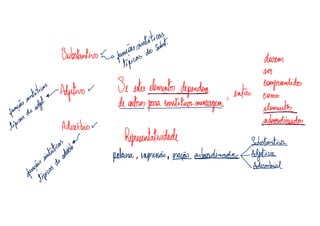 Substantivo → funções sintáticas
típicas do subst.
Adjetivo → funções sintáticas
típicas do adjet.
Advérbio → funções sintáticas
típicas do advérbio
Se estes elementos dependem
de outros para constituir mensagem, então
devem
ser
compreendidos
como
elementos
subordinados
Representatividade
palavra, expressão, oração subordinada
Substantiva
Adjetiva
Adverbial